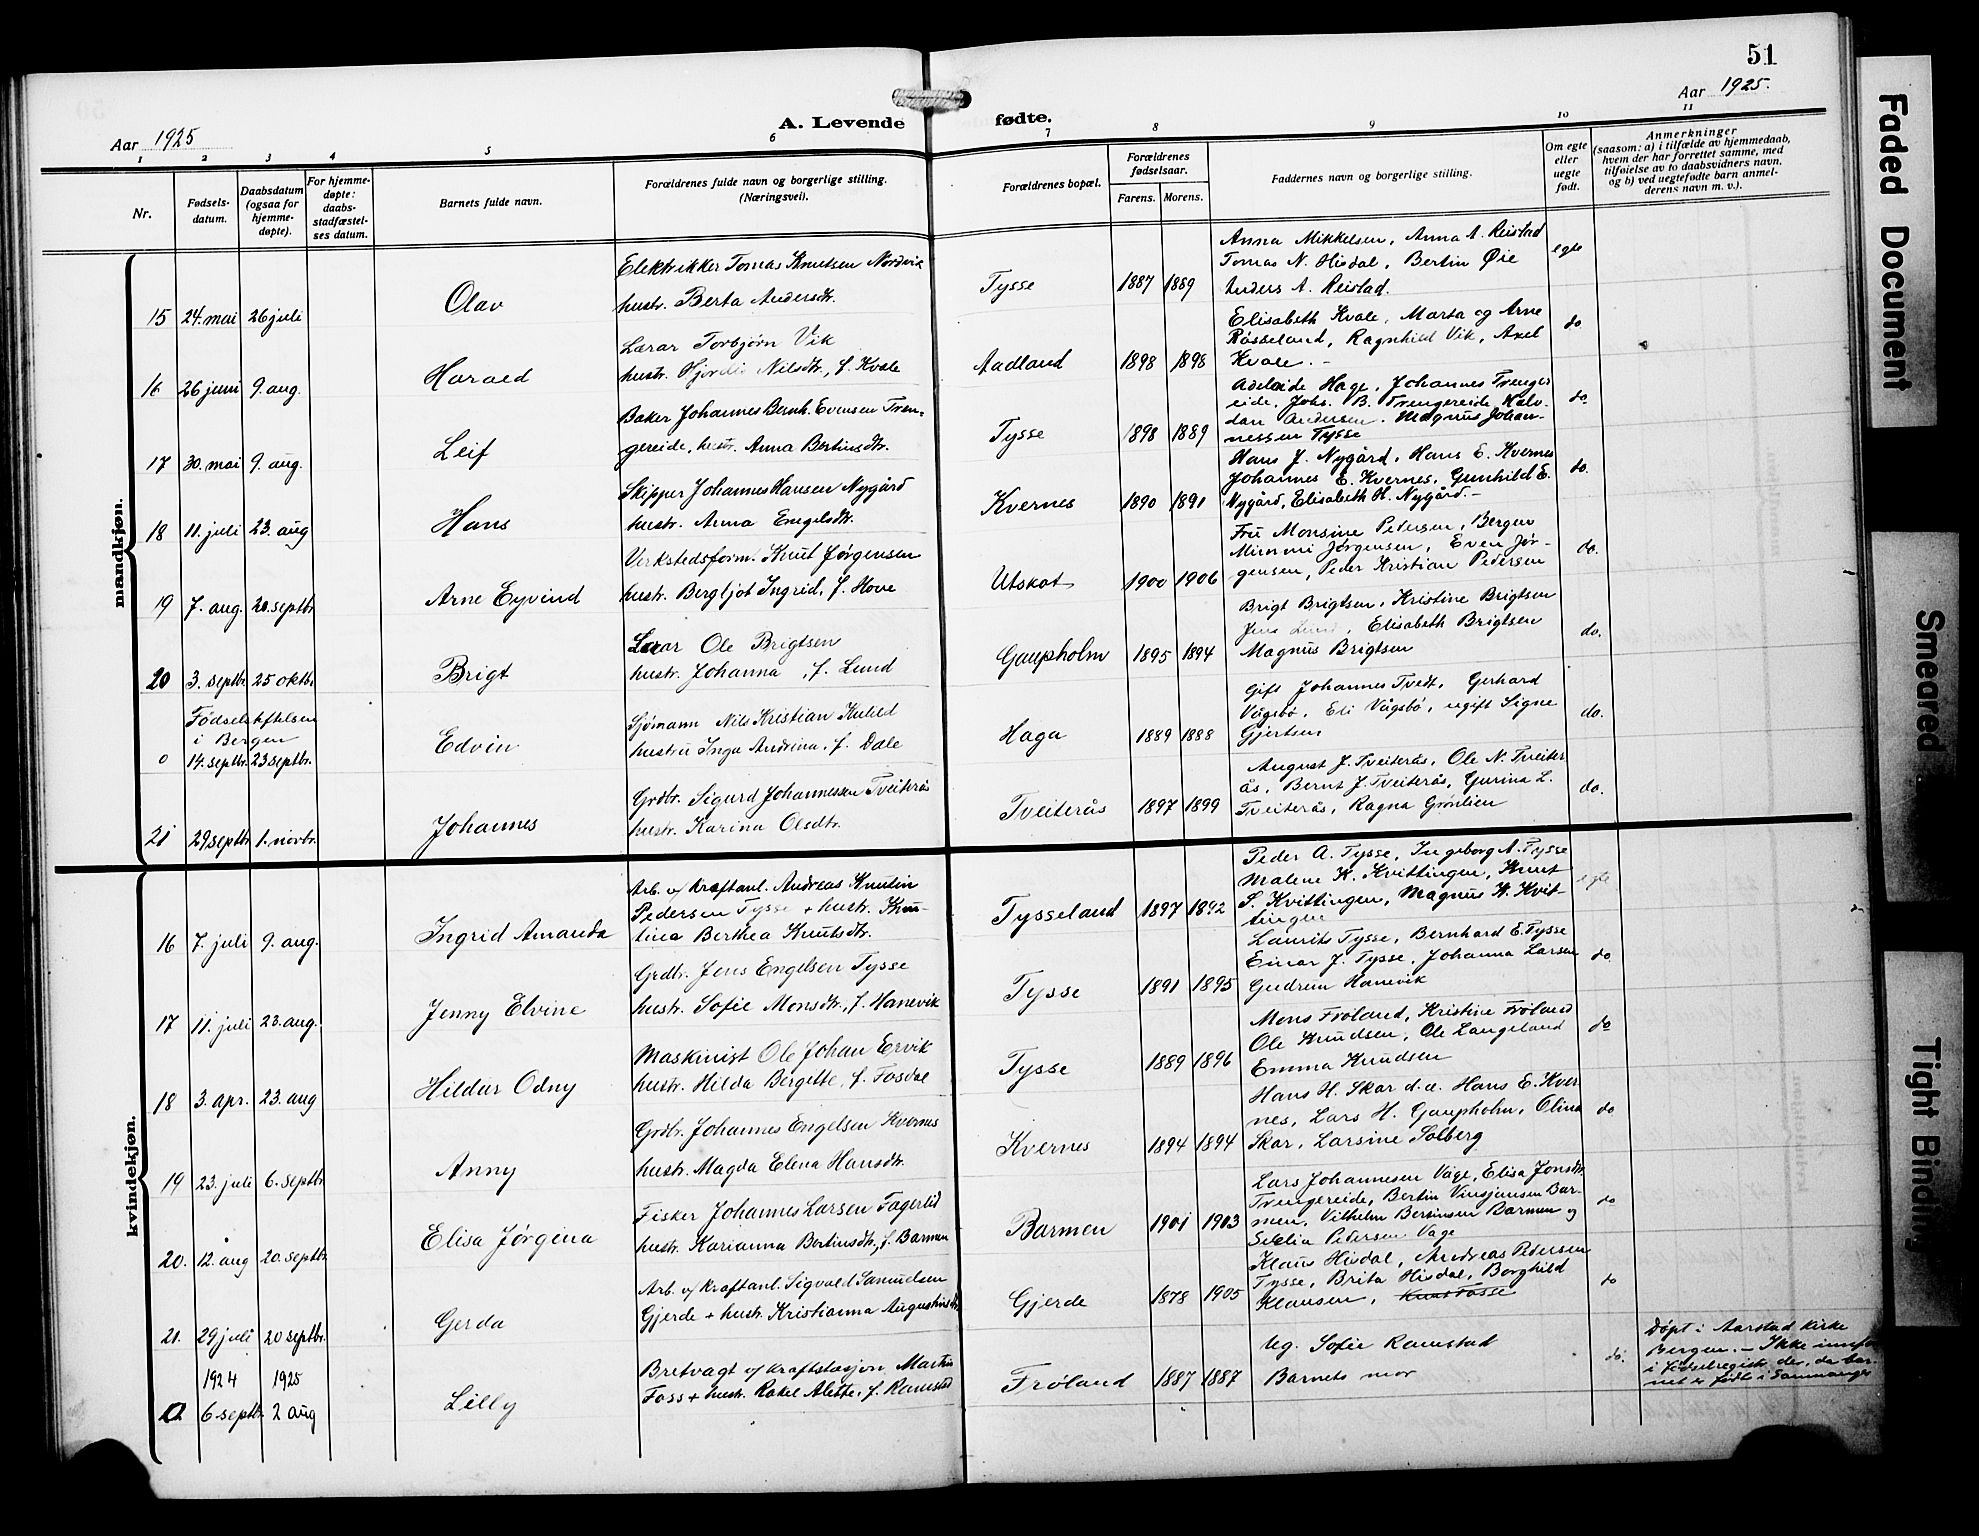 51
Aar 1925
A. Levende
fødte.
Aar 1925.
1 2 3 4 5 6 7 8 9 10 11
Nr.
Fødsels-
datum.
Daabsdatum
(ogsaa for
hjemme-
døpte).
For hjemme-
døpte:
daabs-
stadfæstel-
ses datum.
Barnets fulde navn.
Forældrenes fulde navn og borgerlige stilling.
(Næringsvei).
Forældrenes bopæl.
Forældrenes
fødselsaar.
Farens. Morens.
Faddernes navn og borgerlige stilling.
Om egte
eller
uegte
født.
Anmerkninger
(saasom: a) i tilfælde av hjemmedaab,
hvem der har forrettet samme, med
tilføielse av to daabsvidners navn.
og b) ved uegtefødte barn anmel-
derens navn m. v.).
mandkjøn.
15 24. mai 26 juli
Olav
Elektrikker Tomas Knutsen Nordvik
hustr. Berta Andersdtr.
Tysse
1887 1889
Anna Mikkelsen, Anna A. Reistad
Tomas N. Hisdal, Bertin Øie
Anders A. Reistad.
egte
16 26 juni 9. aug.
Harald
Lærar Torbjørn Vik
hustr. Hjørdis Nilsdtr., f. Kvale
Aadland
1898 1898
Elisabeth Kvale, Marta og Arne
Røsseland, Ragnhild Vik, Axel
Kvale. -
do
17 30. mai 9. aug.
Leif
Baker Johannes Bernh. Evensen Tren-
gereide, hustr. Anna Bertinsdtr.
Tysse
1898 1889
Adelaide Hage, Johannes Trenger
eide, Johs. B. Trengereide, Halv-
dan Andersen. Magnus Johan-
nessen Tysse
do.
18 11. juli 23. aug
Hans
Skipper Johannes Hansen Nygård
hustr. Anna Engelsdtr.
Kvernes
1890 1891
Hans J. Nygård, Hans E. Kvernes
Johannes E. Kvernes, Gunhild E.
Nygård, Elisabeth H. Nygård. -
do.
19 7. aug. 20. septbr
Arne Eyvind
Verkstedsform. Knut Jørgensen
hustr. Bergljot Ingrid, f. Hove
Utskot
1900 1906
Fru Monsine Petersen, Bergen
Mimmi Jørgensen, Even Jør-
gensen, Peder Kristian Pedersen
do.
20 3. septbr. 25 oktbr.
Brigt
Lærar Ole Brigtsen
hustr. Johanna, f. Lund
Gaupholm
1895 1894
Brigt Brigtsen, Kristine Brigtsen
Jens Lund, Elisabeth Brigtsen
Magnus Brigtsen
do.
i Bergen
0 14. septbr. 23 septbr.
Edvin
Sjømann Nils Kristian Kulild
hustru Inga Andrina, f. Dale
Haga
1889 1888
Gift Johannes Tvedt, Gerhard
Vågsbø, Eli Vågsbø, ugift Signe
Gjertsen
do.
21 29 septbr. 1. novbr.
Johannes
Grdbr. Sigurd Johannessen Tveiterås
hustr. Karina Olsdtr.
Tveiterås
1897 1899
August J. Tveiterås, Ole N. Tveiter
ås, Bernt J. Tveiterås, Gurina L.
Tveiterås, Ragna Grønlien
do.
kvindekjøn.
16 7. juli 9. aug.
Ingrid Amanda
Arb. v/ Kraftanl. Andreas Knutin
Pedersen Tysse + hustr. Knu-
tina Berthea Knutsdtr.
Tysseland
1897 1892
Peder A. Tysse, Ingeborg A. Tysse
Malene K. Kvittingen, Knut
S. Kvittingen, Magnus K. Kvit
tingen
egte
17 11. juli 23. aug.
Jenny Elvine
Grdbr. Jens Engelsen Tysse
hustr. Sofie Monsdtr., f. Hanevik
Tysse
1891 1895
Laurits Tysse, Bernhard E. Tysse
Einar J. Tysse, Johanna Larsen
Gudrun Hanevik
do.
18 3. apr. 23. aug
Hildur Odny
Maskinist Ole Johan Ervik
hustr. Hilda Bergitte, f. Fosdal
Tysse
1889 1896
Mons Frøland, Kristine Frøland
Ole Knudsen, Ole Langeland
Emma Knudsen
do
19 23. juli 6. septbr.
Anny
Grdbr. Johannes Engelsen Kvernes
hustr. Magda Elena Hansdtr.
Kvernes
1894 1894
Hans H. Skar d.e. Hans E. Kver
nes, Lars H. Gaupholm, Olina
Skar, Larsine Solberg
do
20. 12. aug 20. septbr.
Elisa Jørgina
Fisker Johannes Larsen Fagerlid
hustr. Karianna Bertinsdtr., f. Barmen
Barmen
1901 1903
Lars Johannesen Våge, Elisa Jonsdtr.
Trengereide, Bertin Vinsjansen Bar-
men, Vilhelm Bertinsen Barmen og
Pedersen Våge
do
21. 29 juli 20 septbr.
Gerda
Arb. v/ Kraftanl. Sigvald Samuelsen
Gjerde + hustr. Kristianna Augustinsdtr.
Gjerde
1878 1905
Klaus Hisdal, Andreas Pedersen
Tysse, Brita Hisdal, Borghild
Klausen,
do
1924 1925
0. 6. septbr. 2 aug
Lilly
Bretvagt v/ Kraftstasjon Martin
Foss + hustr. Rakel Alette, f. Ramstad
Frøland
1887 1887
Ug. Sofie Ramstad
Barnets mor
do.
Døpt i Aarstad kirke
Bergen. - Ikke innfø
i fødselregistr. der, da bar-
net er født i Samnanger
Faded Document
Smeared
Tight Binding